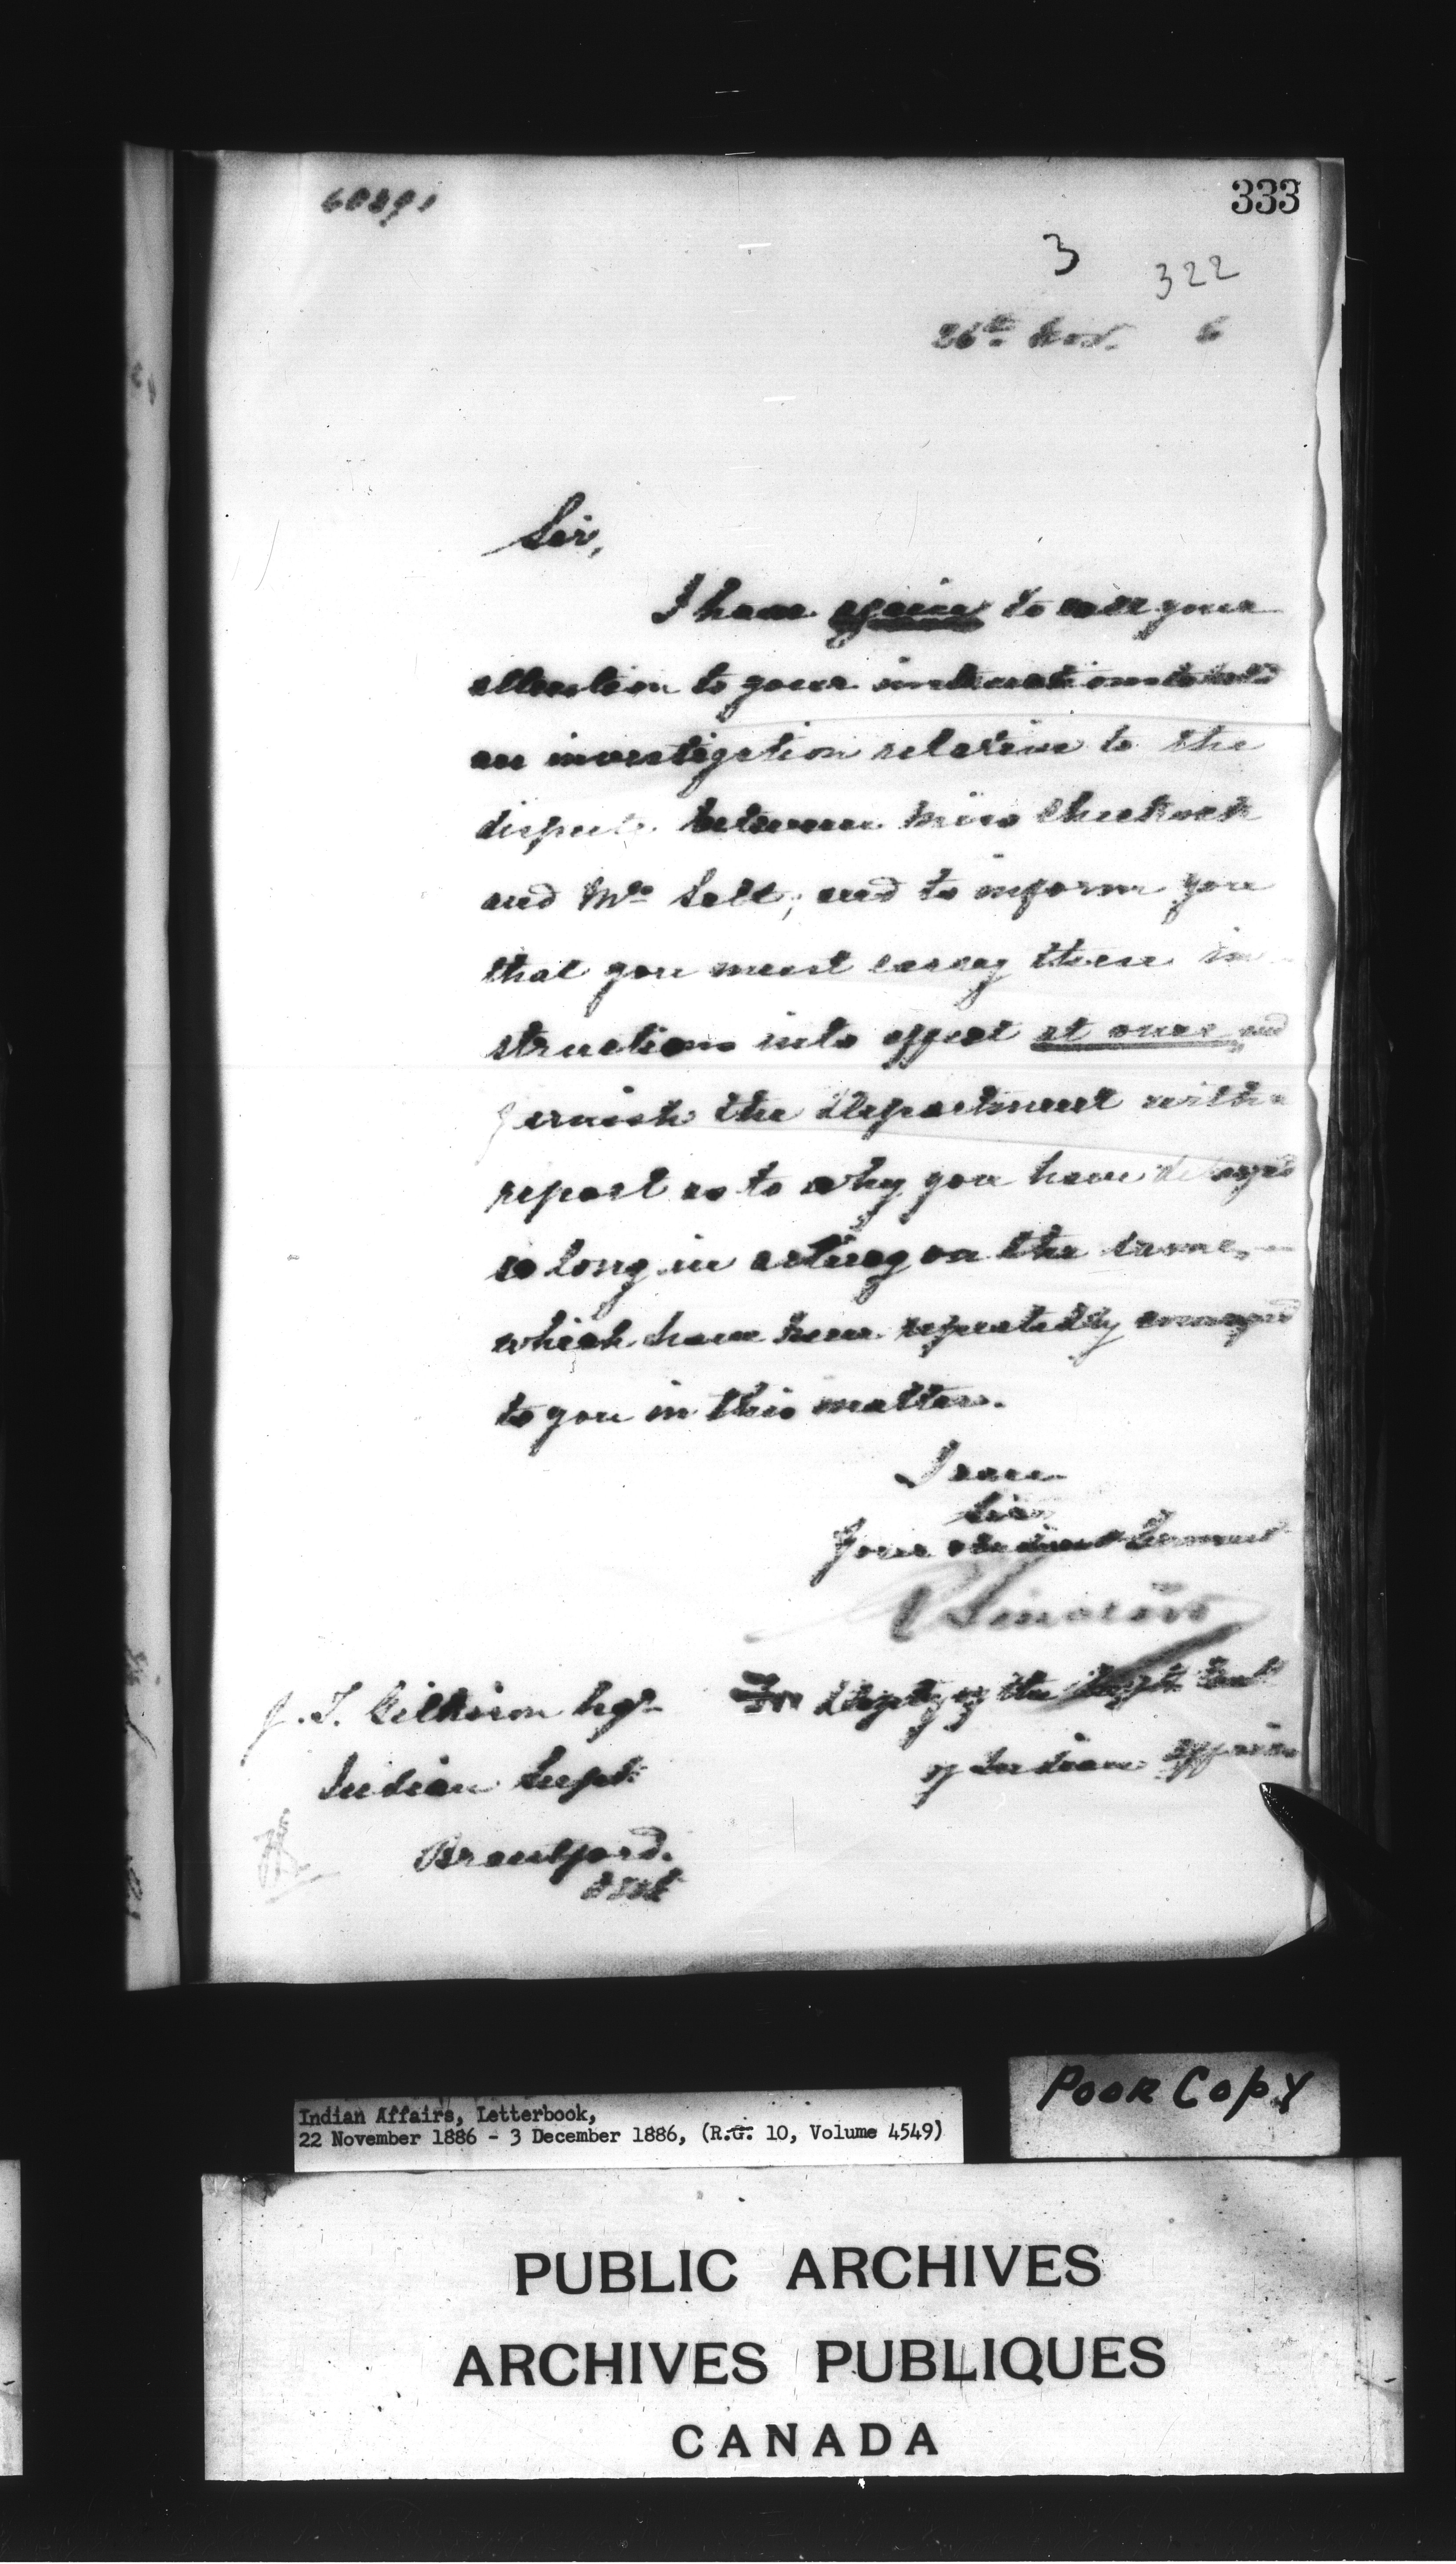 333
3
322
26th Nov. 6
Sir,
I have again to call your
attention to your instructions to hold
an investigation relative to the
dispute between Miss
and Mrs Salt; and to inform you
that you must carry these in
structions into effect at once and
furnish the Department with a
report as to why you have delayed
so long in acting on the same,
which have been repeatedly
to you in this matter.
I am
Sir
Your obedient Servant
For Deputy of the Supt Genl
of Indian Affairs
J. T. Gilkison Esqr
Indian Supt
Brantford.
Ont
POOR COPY
Indian Affairs, Letterbook,
22 November 1886 - 3 December 1886, (R.G. 10, Volume 4549)
PUBLIC ARCHIVES
ARCHIVES PUBLIQUES
CANADA